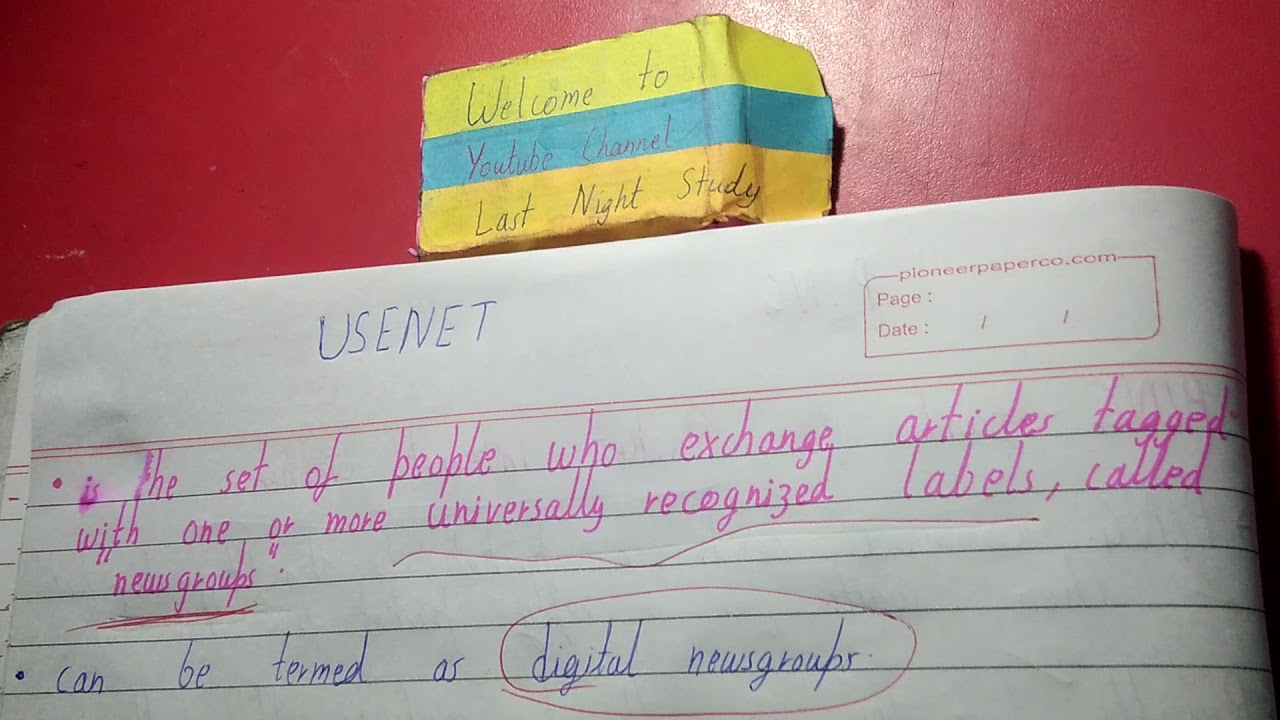 Welcome to
Youtube Channel
Last Night Study
pioneerpaperco.com
Page :
Date : / /
USENET
• is the set of people who exchange articles tagged
with one or more universally recognized labels, called
"newsgroups".
• can be termed as digital newsgroups.